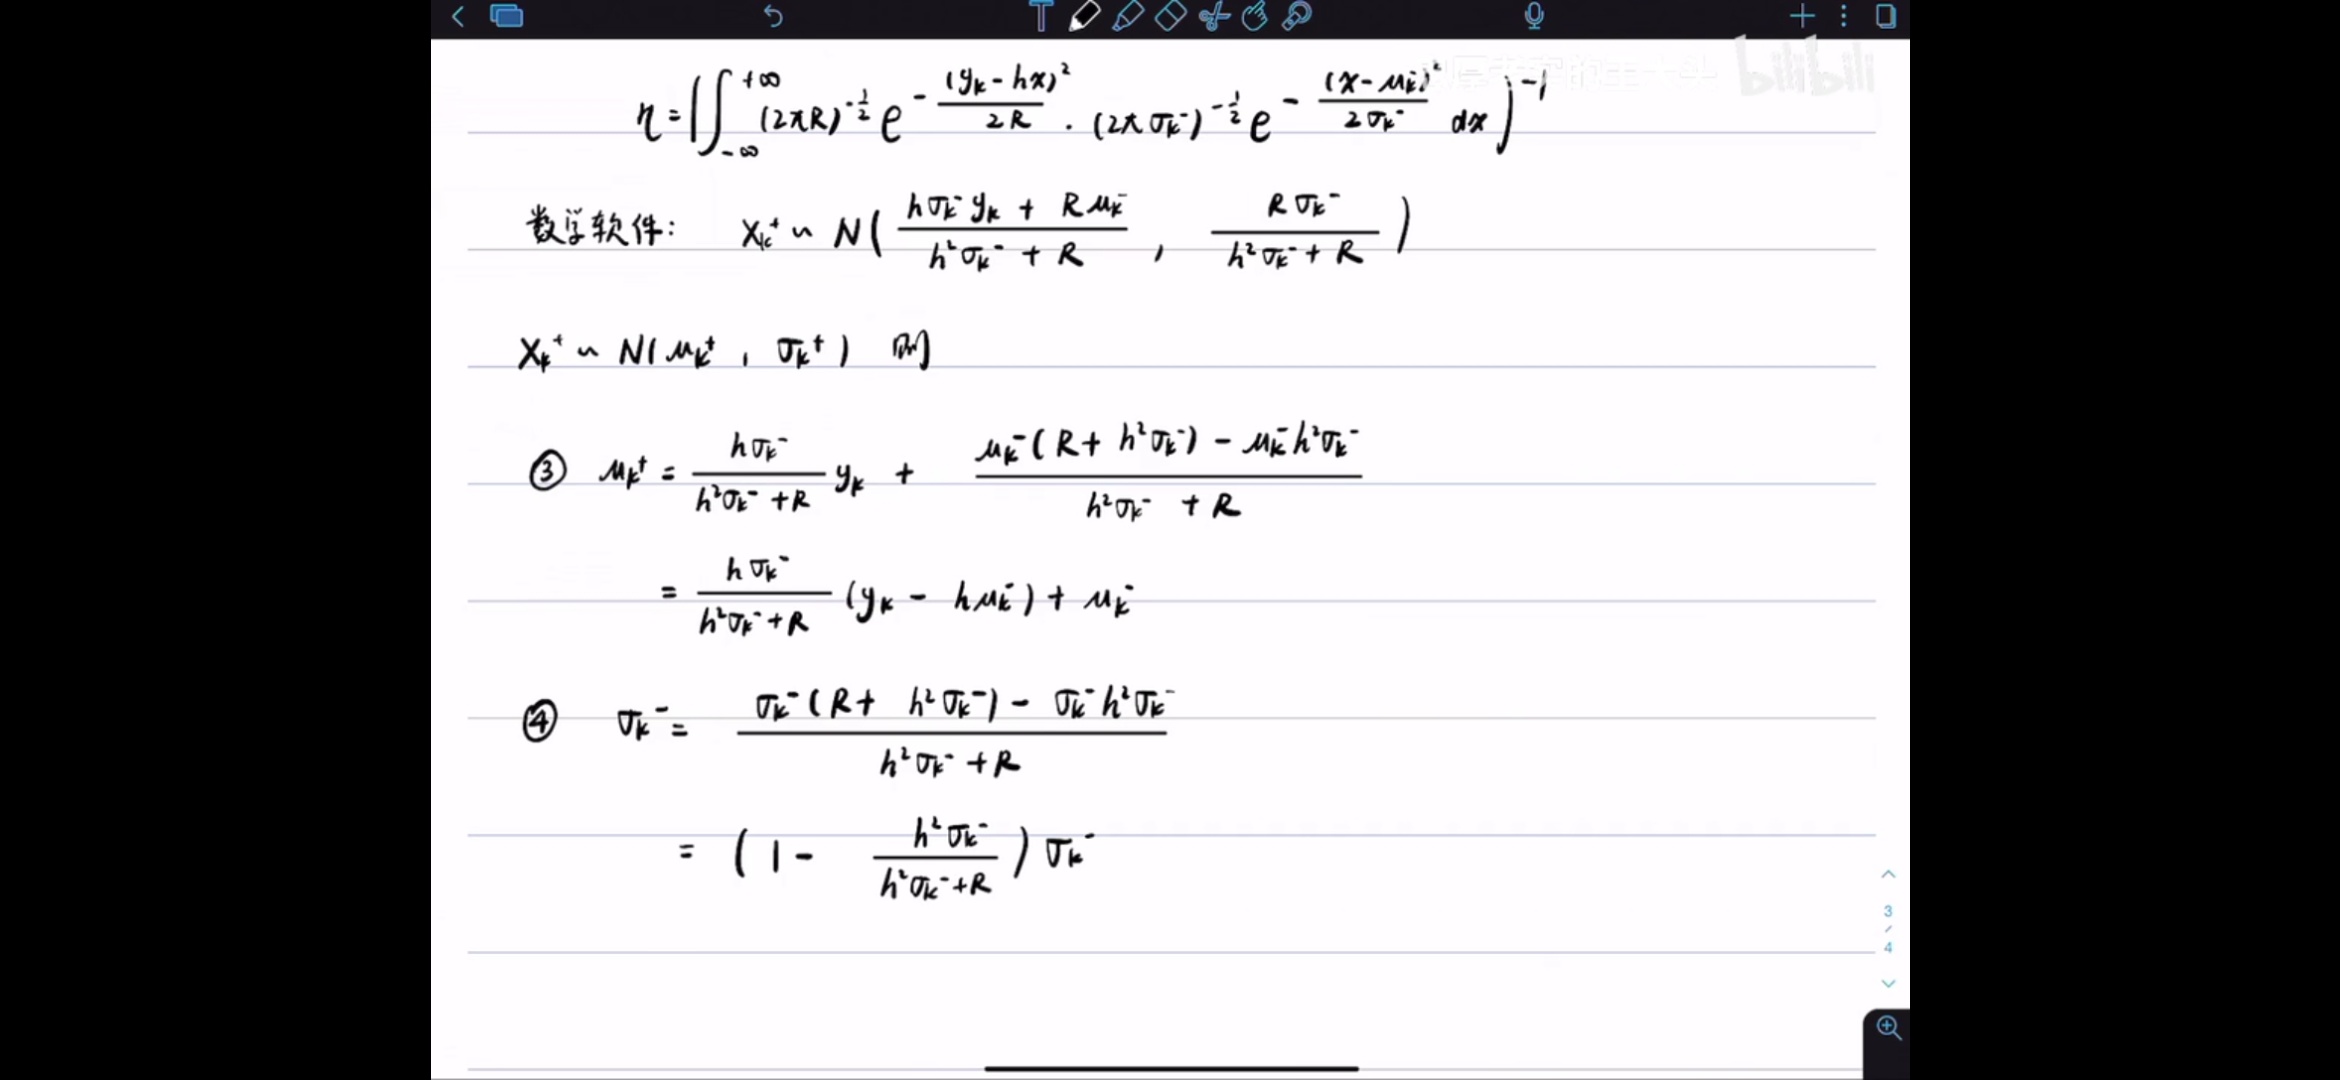 bilibili
η = (∫_{-∞}^{+∞} (2πR)^{-1/2} e^{-(y_k - hx)²/2R} · (2πσ_k⁻)^{-1/2} e^{-(x-μ_k⁻)²/2σ_k⁻} dx)^{-1}
数学软件: X_k⁺ ~ N( (hσ_k⁻ y_k + Rμ_k⁻)/(h²σ_k⁻ + R) , Rσ_k⁻/(h²σ_k⁻ + R) )
X_k⁺ ~ N(μ_k⁺ , σ_k⁺) 则
③ μ_k⁺ = hσ_k⁻/(h²σ_k⁻ + R) y_k + (μ_k⁻(R + h²σ_k⁻) - μ_k⁻h²σ_k⁻)/(h²σ_k⁻ + R)
= hσ_k⁻/(h²σ_k⁻ + R) (y_k - hμ_k⁻) + μ_k⁻
④ σ_k⁻ = (σ_k⁻(R + h²σ_k⁻) - σ_k⁻h²σ_k⁻)/(h²σ_k⁻ + R)
= (1 - h²σ_k⁻/(h²σ_k⁻ + R)) σ_k⁻
3
/
4